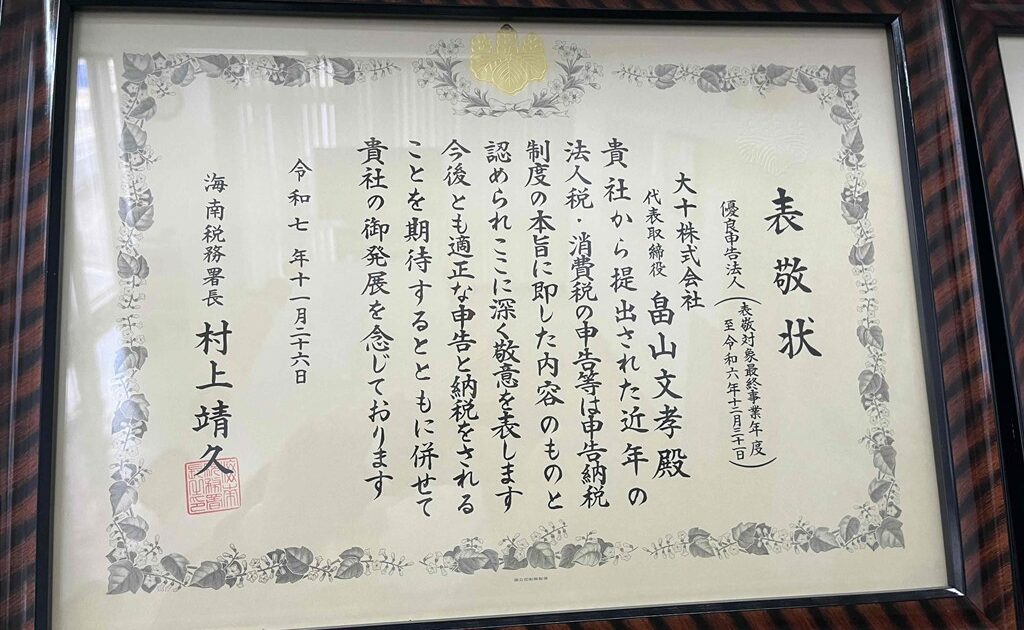 表敬状
優良申告法人
(表敬対象最終事業年度
至令和六年十二月三十一日)
大十株式会社
代表取締役 畠山文孝殿
貴社から提出された近年の
法人税・消費税の申告等は申告納税
制度の本旨に即した内容のものと
認められここに深く敬意を表します
今後とも適正な申告と納税をされる
ことを期待するとともに併せて
貴社の御発展を念じております
令和七年十一月二十六日
海南税務署長 村上靖久